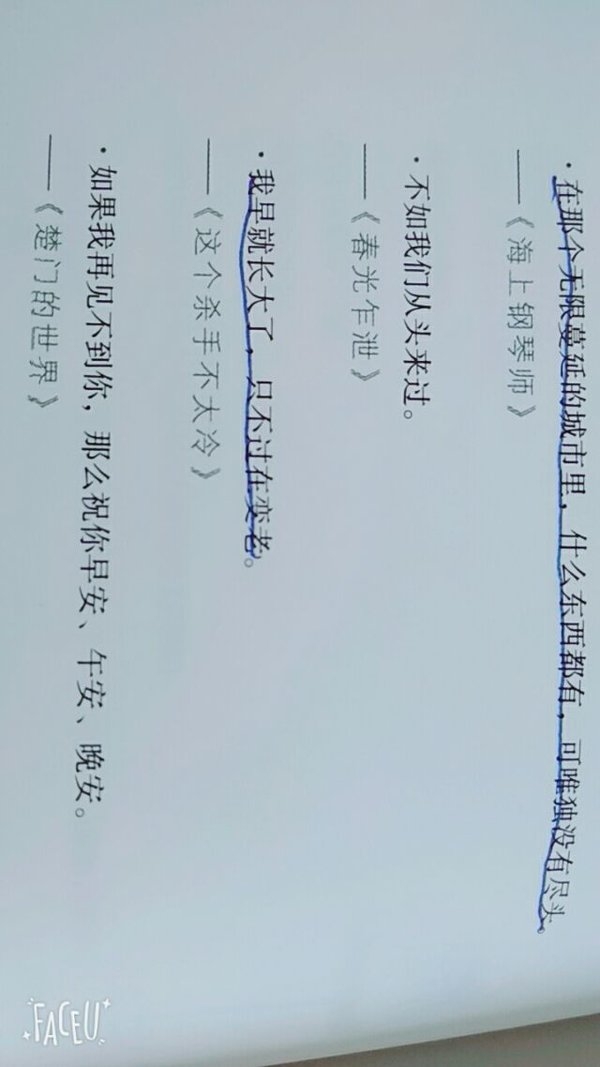 ·在那个无限蔓延的城市里，什么东西都有，可唯独没有尽头。
——《海上钢琴师》
·不如我们从头来过。
——《春光乍泄》
·我早就长大了，只不过在变老。
——《这个杀手不太冷》
·如果我再见不到你，那么祝你早安、午安、晚安。
——《楚门的世界》
FACEU